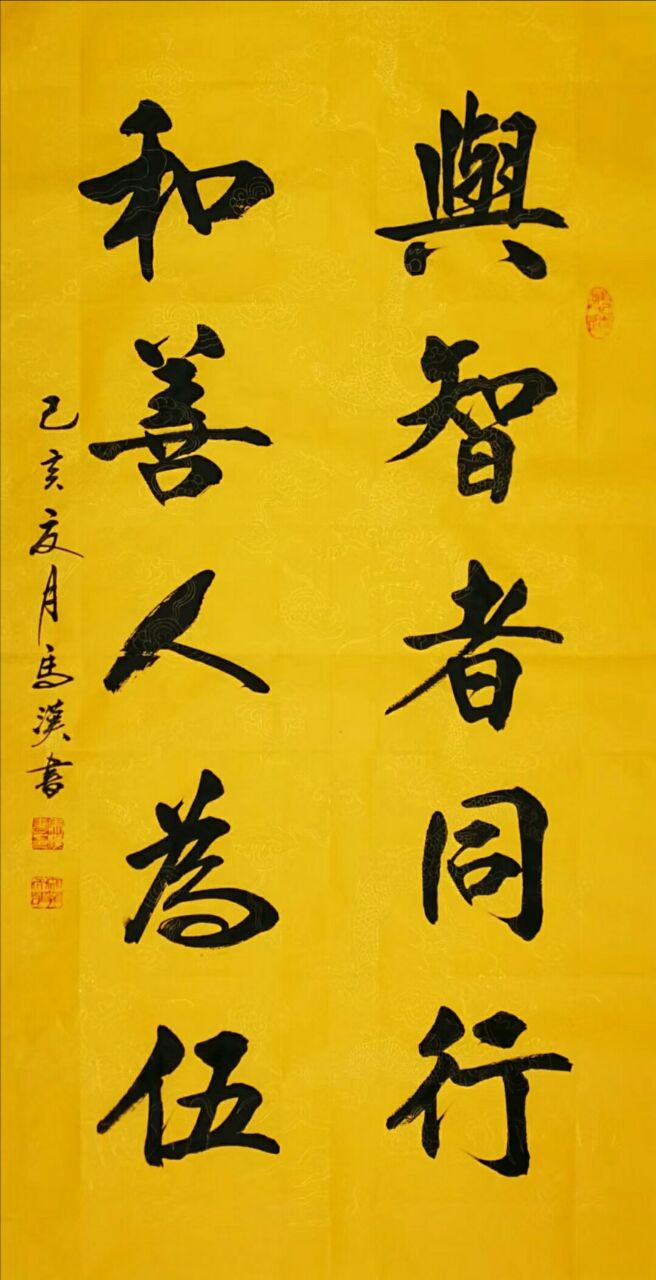 與智者同行
和善人為伍
己亥夏月馬漢書